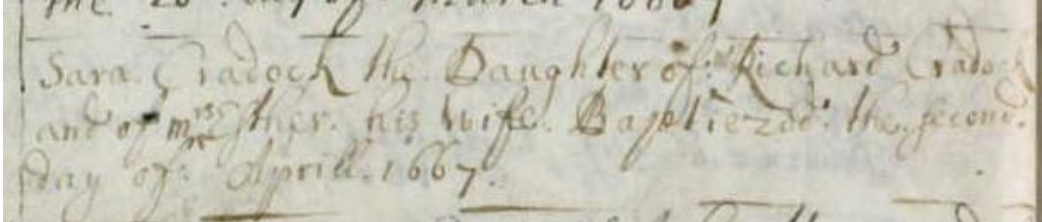 the 26 day of March 1666/7
Sara Cradock the Daughter of Mr Richard Cradock
and of mrs Esther his Wife Baptiezed the second
day of Aprill 1667